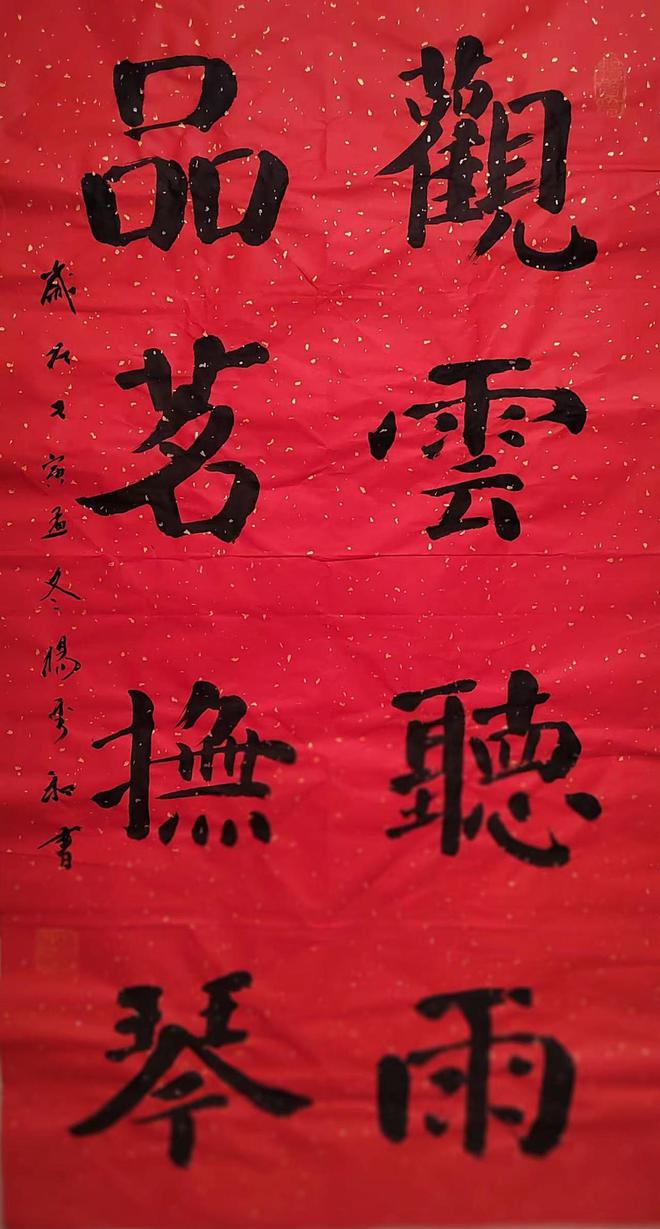 觀雲聽雨
品茗撫琴
歲在壬寅孟冬楊秀和書